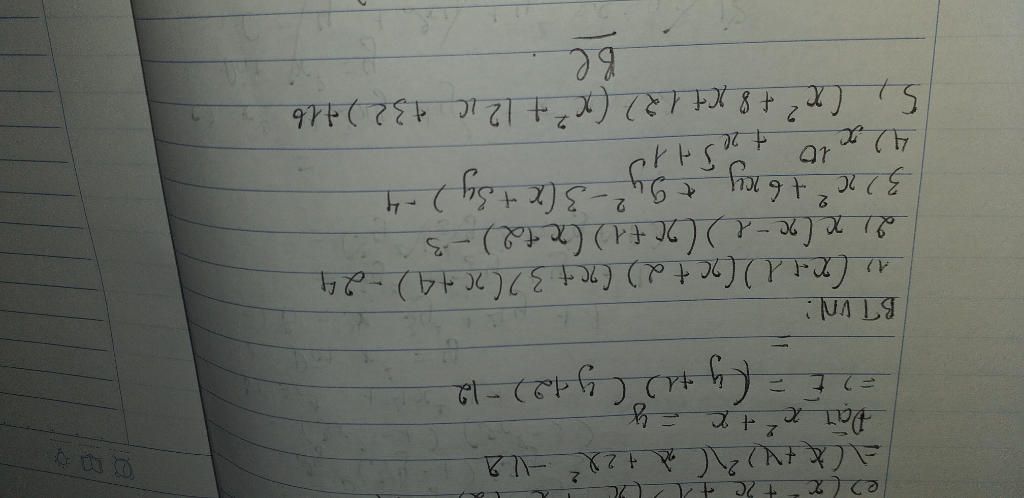 e) (x² + x + 1)(x² + x + 2)
Đặt x² + x = y
=> E = (y+1)(y+2) - 12
=
BTVN:
1, (x+1)(x+2)(x+3)(x+4) - 24
2, x(x-1)(x+1)(x+2) - 3
3) x² + 6xy + 9y² - 3(x+3y) - 4
4) x¹⁰ + x⁵ + 1
5, (x² + 8x + 12)(x² + 12x + 32) + 16
BL